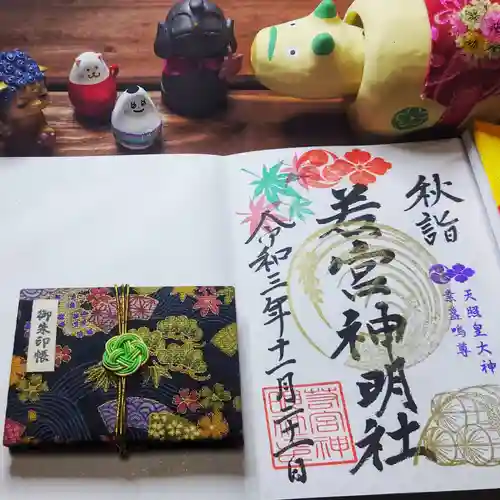 秋詣
天照皇大神
素盞嗚尊
若宮神明社
令和三年十一月二十一日
御朱印帳